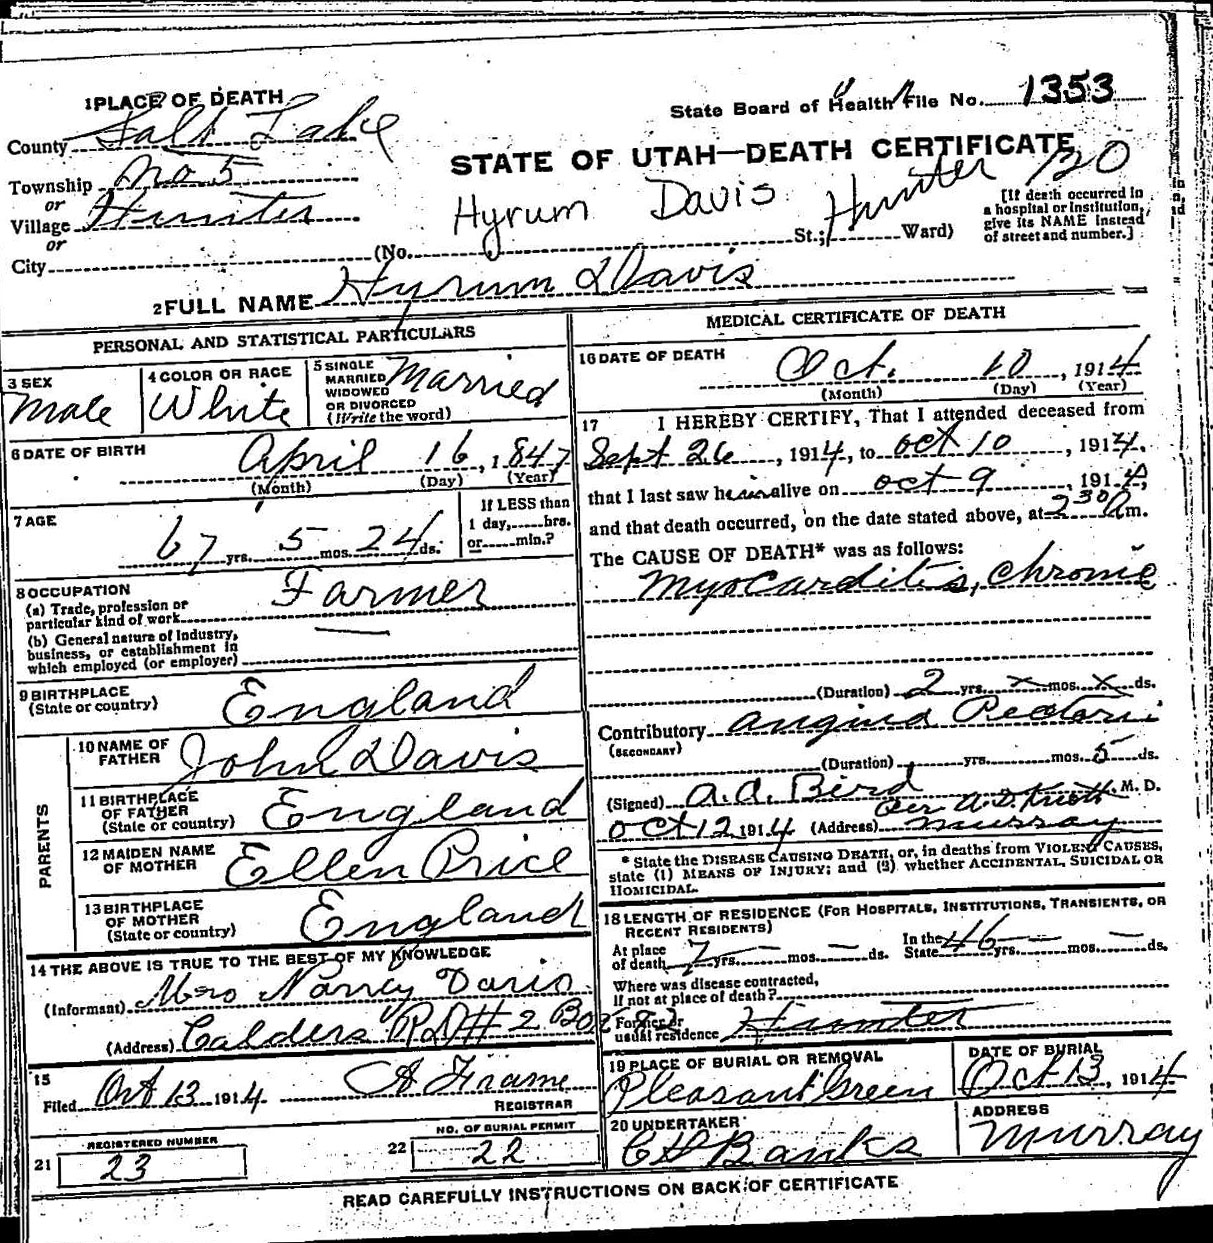 1 PLACE OF DEATH
State Board of Health File No. 1353
County Salt Lake
STATE OF UTAH—DEATH CERTIFICATE
Township No 5
Hyrum Davis Hunter 120
or
Village Hunter
[If death occurred in a hospital or institution, give its NAME instead of street and number.]
or
City (No. St.; Ward)
2 FULL NAME Hyrum Davis
PERSONAL AND STATISTICAL PARTICULARS
3 SEX Male
4 COLOR OR RACE White
5 SINGLE MARRIED WIDOWED OR DIVORCED (Write the word) Married
6 DATE OF BIRTH April 16, 1847
(Month) (Day) (Year)
7 AGE 67 yrs. 5 mos. 24 ds.
If LESS than 1 day, hrs. or min.?
8 OCCUPATION
(a) Trade, profession or particular kind of work Farmer
(b) General nature of industry, business, or establishment in which employed (or employer) —
9 BIRTHPLACE (State or country) England
PARENTS
10 NAME OF FATHER John Davis
11 BIRTHPLACE OF FATHER (State or country) England
12 MAIDEN NAME OF MOTHER Ellen Price
13 BIRTHPLACE OF MOTHER (State or country) England
14 THE ABOVE IS TRUE TO THE BEST OF MY KNOWLEDGE
(Informant) Mrs Nancy Davis
(Address) Calders RD # 2 Box 82
15
Filed Oct 13 1914 Frame
REGISTRAR
21 REGISTERED NUMBER 23
22 NO. OF BURIAL PERMIT 22
MEDICAL CERTIFICATE OF DEATH
16 DATE OF DEATH Oct. 10, 1914
(Month) (Day) (Year)
17 I HEREBY CERTIFY, That I attended deceased from
Sept 26, 1914, to Oct 10, 1914,
that I last saw him alive on Oct 9, 1914,
and that death occurred, on the date stated above, at 2 30 A m.
The CAUSE OF DEATH* was as follows:
Myocarditis, Chronic
(Duration) 2 yrs. x mos. x ds.
Contributory Angina Pectoris
(SECONDARY)
(Duration) yrs. mos. 5 ds.
(Signed) A.A. Bird, M. D.
Per A.D.
Oct 12 1914 (Address) Murray
* State the DISEASE CAUSING DEATH, or, in deaths from VIOLENT CAUSES, state (1) MEANS OF INJURY; and (2) whether ACCIDENTAL, SUICIDAL OR HOMICIDAL.
18 LENGTH OF RESIDENCE (FOR HOSPITALS, INSTITUTIONS, TRANSIENTS, OR RECENT RESIDENTS)
At place of death 7 yrs. — mos. — ds. In the State 46 yrs. — mos. — ds.
Where was disease contracted, if not at place of death?
Former or usual residence Hunter
19 PLACE OF BURIAL OR REMOVAL Pleasant Green
DATE OF BURIAL Oct 13, 1914
20 UNDERTAKER Banks
ADDRESS Murray
READ CAREFULLY INSTRUCTIONS ON BACK OF CERTIFICATE